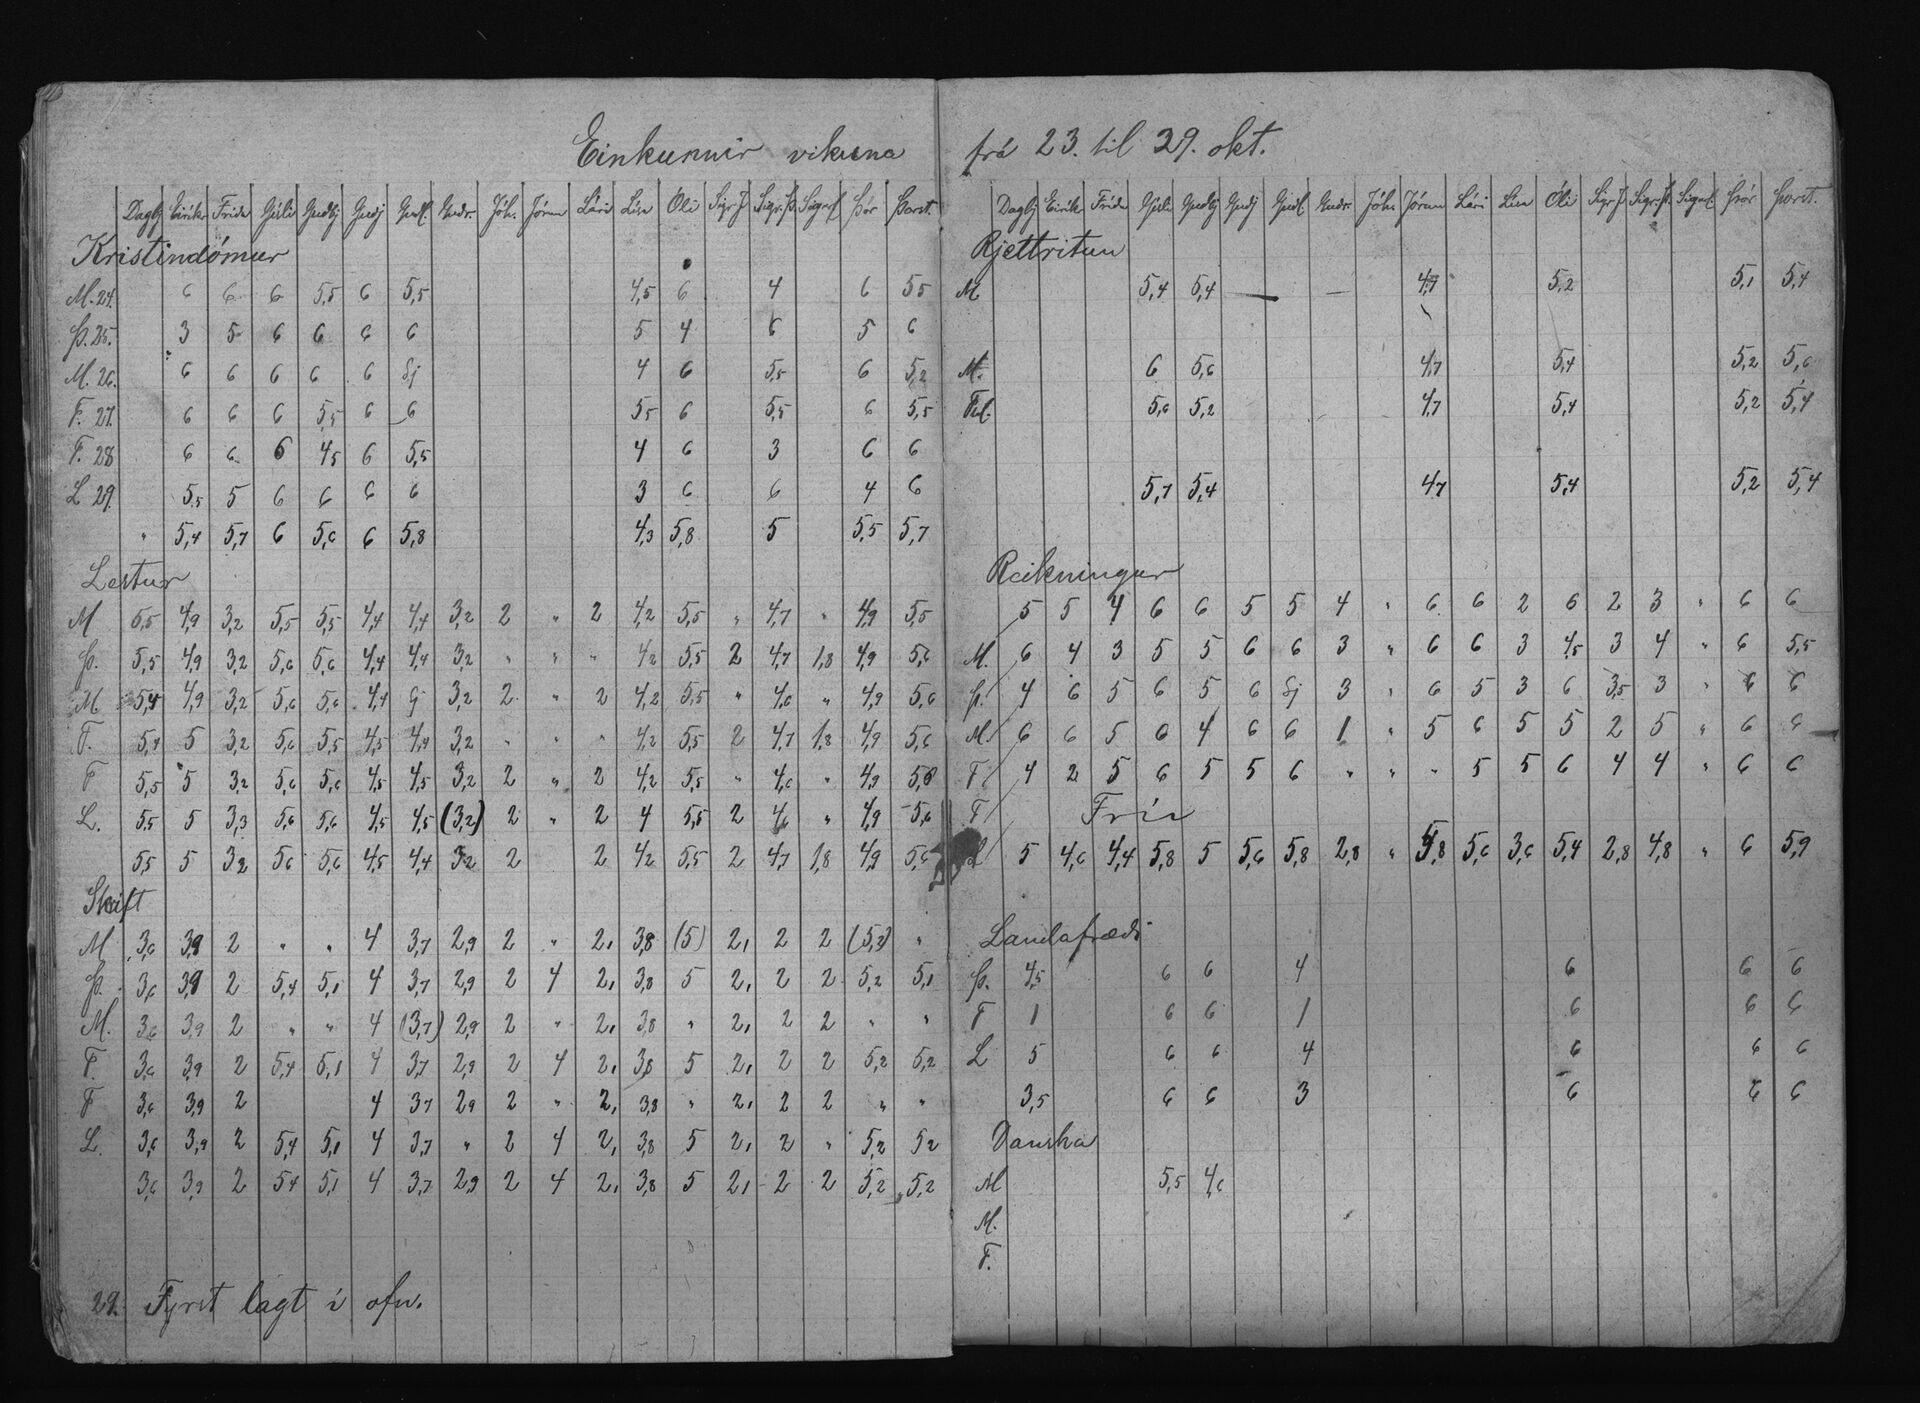 Einkunnir vikuna
Dagbj Eirikr Frida Gisli Gudbj Gudj Gudl. Gudr. Jóh. Jórun Lári Lisa Óli Sigr J Sigr. Þ. Þór Þorst.
Kristindómur
M. 24. 6 6 6 5,5 6 5,5 4,5 6 4 6 5,5
Þ. 25. 3 5 6 6 6 6 5 4 6 5 6
M. 26. 6 6 6 6 6 4 6 5,5 6 5,2
F. 27. 6 6 6 5,5 6 6 5,5 6 5,5 6 5,5
F. 28 6 6 6 4,5 6 5,5 4 6 3 6 6
L 29. 5,5 5 6 6 6 6 3 6 6 4 6
" 5,4 5,7 6 5,6 6 5,8 4,3 5,8 5 5,5 5,7
Lestur
M 5,5 4,9 3,2 5,5 5,5 4,4 4,4 3,2 2 " 2 4,2 5,5 " 4,7 " 4,9 5,5
Þ. 5,5 4,9 3,2 5,6 5,6 4,4 4,4 3,2 " " " 4,2 5,5 2 4,7 1,8 4,9 5,6
M 5,4 4,9 3,2 5,6 5,6 4,4 3,2 2 " 2 4,2 5,5 " 4,6 " 4,9 5,6
F. 5,4 5 3,2 5,6 5,5 4,5 4,4 3,2 " " " 4,2 5,5 2 4,7 1,8 4,9 5,6
F 5,5 5 3,2 5,6 5,6 4,5 4,5 3,2 2 " 2 4,2 5,5 " 4,6 " 4,9 5,6
L. 5,5 5 3,3 5,6 5,6 4,5 4,5 (3,2) 2 " 2 4 5,5 2 4,6 " 4,9 5,6
5,5 5 3,2 5,6 5,6 4,5 4,4 3,2 2 2 4,2 5,5 2 4,7 1,8 4,9 5,6
Skrift
M. 3,6 3,9 2 " " 4 3,7 2,9 2 " 2,1 3,8 (5) 2,1 2 2 (5,2) "
Þ. 3,6 3,9 2 5,4 5,1 4 3,7 2,9 2 4 2,1 3,8 5 2,1 2 2 5,2 5,1
M. 3,6 3,9 2 " " 4 (3,7) 2,9 2 " 2,1 3,8 " 2,1 2 2 " "
F. 3,6 3,9 2 5,4 5,1 4 3,7 2,9 2 4 2,1 3,8 5 2,1 2 2 5,2 5,2
F 3,6 3,9 2 4 3,7 2,9 2 " 2,1 3,8 " 2,1 2 2 " "
L. 3,6 3,9 2 5,4 5,1 4 3,7 " 2 4 2,1 3,8 5 2,1 2 " 5,2 5,2
3,6 3,9 2 5,4 5,1 4 3,7 2,9 2 4 2,1 3,8 5 2,1 2 2 5,2 5,2
29. Fyrst lagt í ofn.
frá 23. til 29. okt.
Dagbj Eirikr Frida Gisli Gudbj Gudj Gudl. Gudr. Jóh. Jórun Lári Lisa Óli Sigr J Sigr. Þ. Þór Þorst.
Rjettritun
M 5,4 5,4 — — 4,7 5,2 5,1 5,4
M. 6 5,6 4,7 5,4 5,2 5,6
5,6 5,2 4,7 5,4 5,2 5,4
5,7 5,4 4,7 5,4 5,2 5,4
Reikningur
5 5 4 6 6 5 5 4 " 6 6 2 6 2 3 " 6 6
M. 6 4 3 5 5 6 6 3 " 6 6 3 4,5 3 4 " 6 5,5
Þ. 4 6 5 6 5 6 3 " 6 5 3 6 3,5 3 " 6 6
M 6 6 5 6 4 6 6 1 " 5 6 5 5 2 5 " 6 6
F. 4 2 5 6 5 5 6 " " " 5 5 6 4 4 " 6 6
F Frí
L 5 4,6 4,4 5,8 5 5,6 5,8 2,8 " 5,8 5,6 3,6 5,4 2,8 4,8 " 6 5,9
Landafræði
Þ. 4,5 6 6 4 6 6 6
F 1 6 6 1 6 6 6
L 5 6 6 4 6 6 6
3,5 6 6 3 6 6 6
Danska
M 5,5 4,6
M.
F.